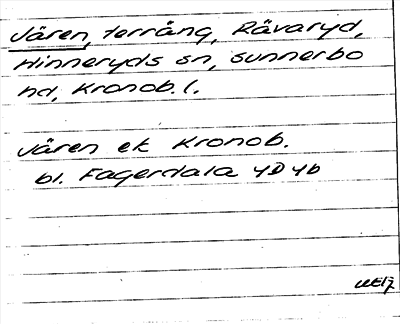 Jären, terräng, Rävaryd,
Hinneryds sn, Sunnerbo
hd, Kronob. l.
Jären ek Kronob.
bl. Fagerdala 4D4b